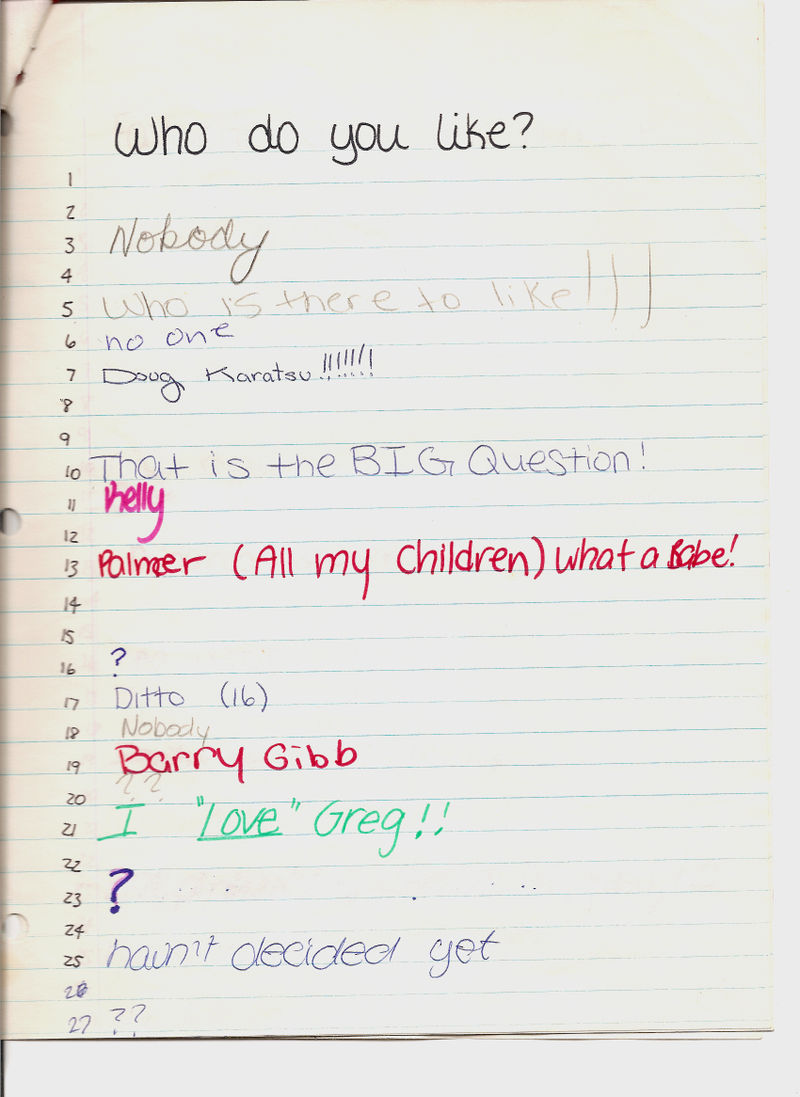 Who do you like?
1
2
3 Nobody
4
5 Who is there to like!!!
6 no one
7 Doug Karatsu!!!!!!!
8
9
10 That is the BIG Question!
11 Kelly
12
13 Palmer (All my Children) What a Babe!
14
15
16 ?
17 Ditto (16)
18 Nobody
19 Barry Gibb
20 ??
21 I "Love" Greg!!
22
23 ?
24
25 havn't decided yet
26
27 ??